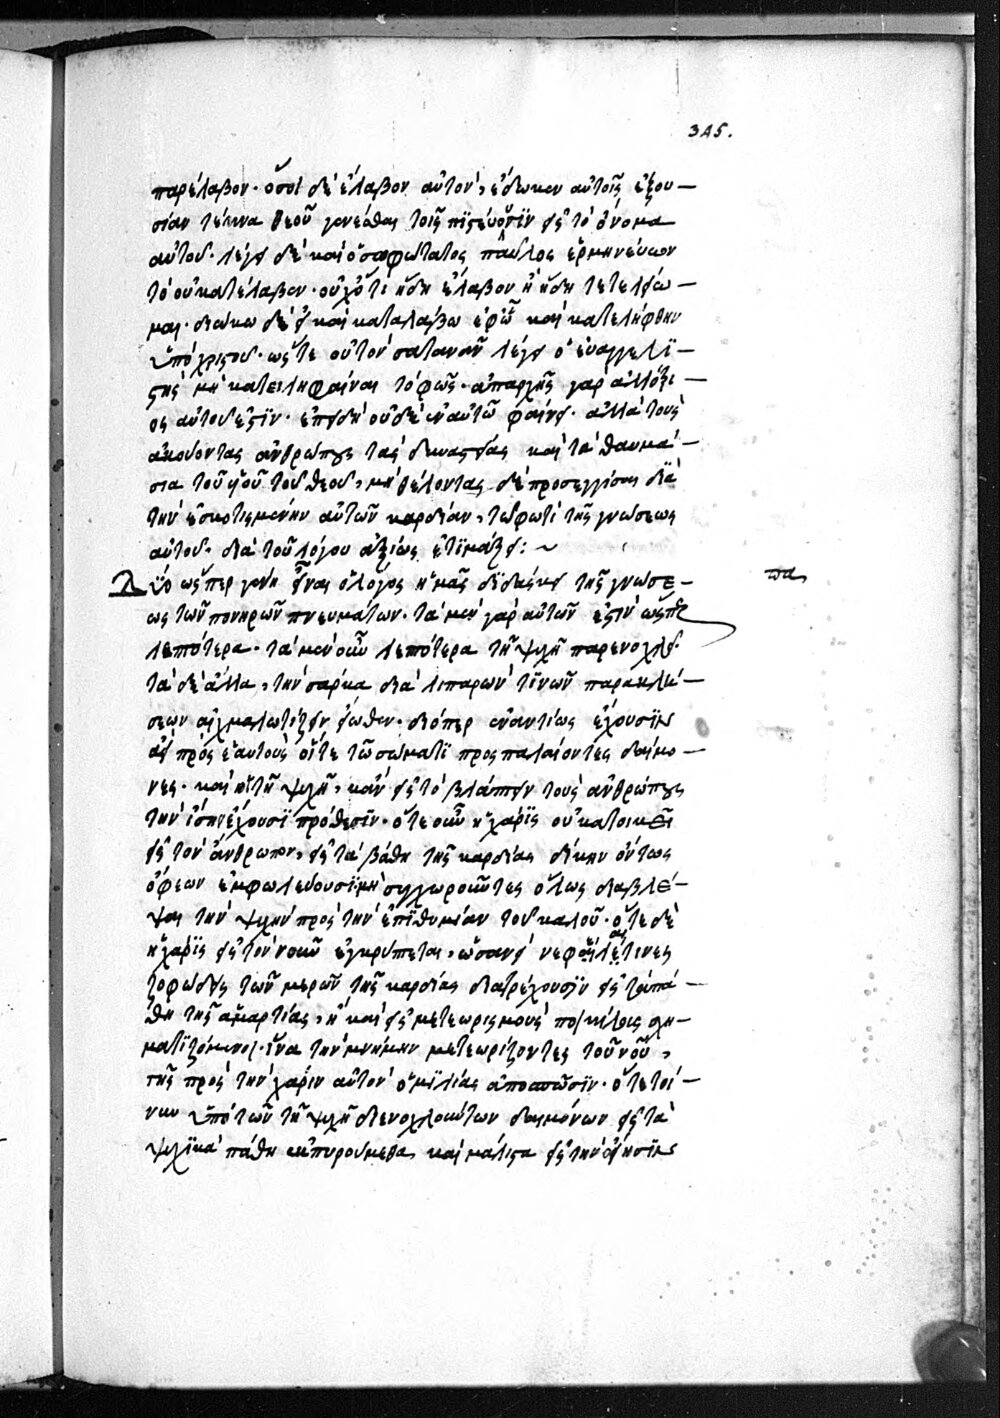 345.
παρέλαβον· ὅσοι δὲ ἔλαβον αὐτὸν, ἔδωκεν αὐτοῖς ἐξου-
σίαν τέκνα θεοῦ γενέσθαι τοῖς πιστεύουσιν εἰς τὸ ὄνομα
αὐτοῦ· λέγει δὲ καὶ ὁ σοφώτατος παῦλος ἑρμηνεύων
τὸ οὐ κατέλαβεν· οὐχ ὅτι ἤδη ἔλαβον ἢ ἤδη τετελείω-
μαι· διώκω δὲ εἰ καὶ καταλάβω ἐφ' ᾧ καὶ κατελήφθην
ὑπὸ χριστοῦ· ὥστε οὐ τὸν σατανᾶν λέγει ὁ εὐαγγελι-
στὴς μὴ κατειληφέναι τὸ φῶς· ἀπαρχῆς γὰρ ἀλλότρι-
ος αὐτοῦ ἐστὶν· ἐπειδὴ οὐδὲ ἐν αὐτῷ φαίνει· ἀλλὰ τοὺς
ἀκούοντας ἀνθρώπους τὰς δυναστείας καὶ τὰ θαυμά-
σια τοῦ υἱοῦ τοῦ θεοῦ, μὴ θέλοντας δὲ προσεγγίσαι διὰ
τὴν ἐσκοτισμένην αὐτῶν καρδίαν, τῷ φωτὶ τῆς γνώσεως
αὐτοῦ· διὰ τοῦ λόγου ἀξίως ἐτιμάζει: ~
Δύο ὥσπερ γένη εἶναι ὁ λόγος ἡμᾶς διδάσκει τῆς γνώσε-
πα
ως τῶν πονηρῶν πνευμάτων· τὰ μὲν γὰρ αὐτῶν ἐστὶν ὥσπερ
λεπτότερα· τὰ μὲν οὖν λεπτότερα τῇ ψυχῇ παρενοχλεῖ·
τὰ δὲ ἄλλα, τὴν σάρκα διὰ λιπαρῶν τινῶν παρακλή-
σεων αἰχμαλωτίζειν εἴωθεν· διόπερ ἐναντίως ἔχουσιν
ἀεὶ πρὸς ἑαυτοὺς οἵτε τῷ σώματι προσπαλαίοντες δαίμο-
νες· καὶ οἱ τῇ ψυχῇ, κἂν εἰς τὸ βλάπτειν τοὺς ἀνθρώπους
τὴν ἴσην ἔχουσι πρόθεσιν· ὅτε οὖν ἡ χάρις οὐ κατοικεῖ
εἰς τὸν ἄνθρωπον, εἰς τὰ βάθη τῆς καρδίας δίκην ὄντως
ὄφεων ἐμφωλεύουσι μὴ συγχωροῦντες ὅλως διαβλέ-
ψαι τὴν ψυχὴν πρὸς τὴν ἐπιθυμίαν τοῦ καλοῦ· ὅτε δὲ
ἡ χάρις εἰς τὸν νοῦν ἐγκρύπτεται, ὡσανεὶ νεφέλαι τινες
ζοφώδεις τῶν μερῶν τῆς καρδίας διατρέχουσιν εἰς τὰ πά-
θη τῆς ἁμαρτίας, ἢ καὶ εἰς μετεωρισμοὺς ποικίλους σχη-
ματιζόμενοι· ἵνα τὴν μνήμην μετεωρίζοντες τοῦ νοῦ,
τῆς πρὸς τὴν χάριν αὐτὸν ὁμιλίας ἀποσπῶσιν· ὅτε τοί-
νυν ὑπὸ τῶν τῇ ψυχῇ διενοχλούντων δαιμόνων εἰς τὰ
ψυχικὰ πάθη ἐκπυρούμεθα, καὶ μάλιστα εἰς τὴν οἴησιν